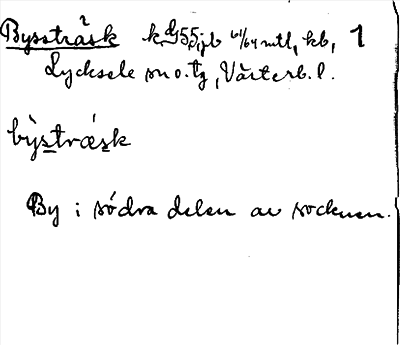 Bysträsk k, jb 61/64 mtl, kb, 1
Lycksele sn o. tg, Västerb. l.
bỳstrǽsk
By i södra delen av socknen.